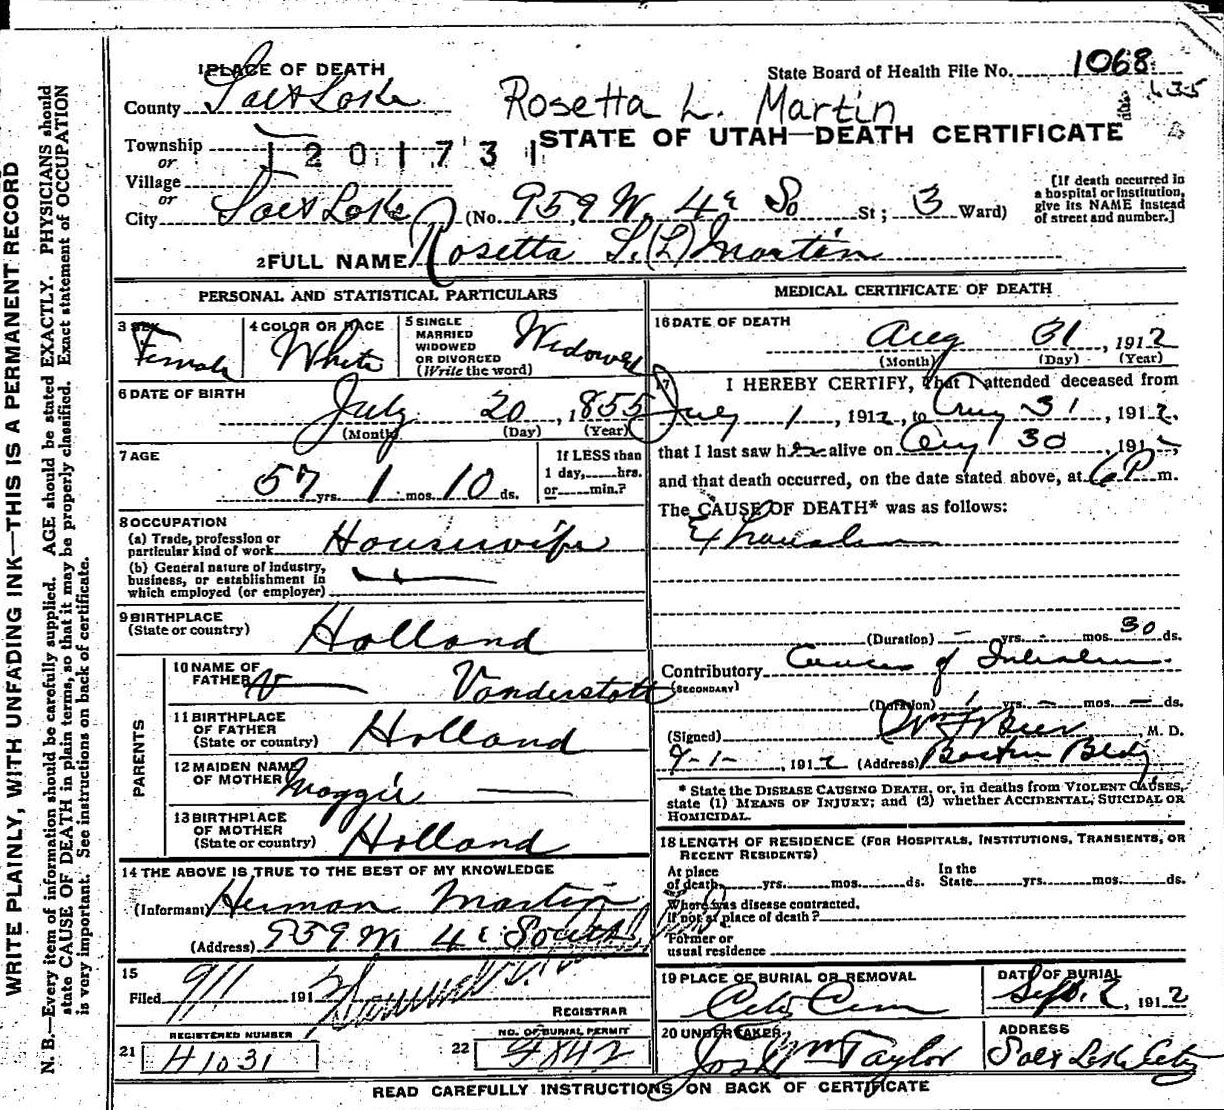 1068
State Board of Health File No.
435
1 PLACE OF DEATH
County Salt Lake
Rosetta L. Martin
STATE OF UTAH—DEATH CERTIFICATE
Township
or
1 2 0 1 7 3 1
Village
or
City Salt Lake (No. 959 W. 4th So St; 3 Ward)
[If death occurred in
a hospital or institution,
give its NAME instead
of street and number.]
2 FULL NAME Rosetta S. (L) Martin
PERSONAL AND STATISTICAL PARTICULARS
3 SEX
Female
4 COLOR OR RACE
White
5 SINGLE
MARRIED
WIDOWED
OR DIVORCED
(Write the word)
Widowed
6 DATE OF BIRTH
July 20, 1855
(Month) (Day) (Year)
7 AGE
57 yrs. 1 mos. 10 ds.
If LESS than
1 day,......hrs.
or......min.?
8 OCCUPATION
(a) Trade, profession or
particular kind of work Housewife
(b) General nature of industry,
business, or establishment in
which employed (or employer)
9 BIRTHPLACE
(State or country) Holland
PARENTS
10 NAME OF
FATHER Vanderstott
11 BIRTHPLACE
OF FATHER
(State or country) Holland
12 MAIDEN NAME
OF MOTHER Maggie
13 BIRTHPLACE
OF MOTHER
(State or country) Holland
14 THE ABOVE IS TRUE TO THE BEST OF MY KNOWLEDGE
(Informant) Herman Martin
(Address) 959 W. 4th South
15
Filed 9/1 191
REGISTRAR
REGISTERED NUMBER
21 H1031
NO. OF BURIAL PERMIT
22 9842
MEDICAL CERTIFICATE OF DEATH
16 DATE OF DEATH
Aug 31, 1912
(Month) (Day) (Year)
17 I HEREBY CERTIFY, that I attended deceased from
July 1, 1912, to Aug 31, 1912,
that I last saw her alive on Aug 30, 191
and that death occurred, on the date stated above, at 6 P m.
The CAUSE OF DEATH* was as follows:
Exhaustion
(Duration) – yrs. - mos. 30 ds.
Contributory Cancer of
(SECONDARY)
(Duration) yrs. – mos. – ds.
(Signed) , M. D.
9-1-, 1912 (Address) Boston Bldg
* State the DISEASE CAUSING DEATH, or, in deaths from VIOLENT CAUSES,
state (1) MEANS OF INJURY; and (2) whether ACCIDENTAL, SUICIDAL OR
HOMICIDAL.
18 LENGTH OF RESIDENCE (FOR HOSPITALS, INSTITUTIONS, TRANSIENTS, OR
RECENT RESIDENTS)
At place
of death,......yrs......mos......ds.
In the
State......yrs......mos......ds.
Where was disease contracted,
If not at place of death?
Former or
usual residence
19 PLACE OF BURIAL OR REMOVAL
City Cem
DATE OF BURIAL
Sept. 2, 1912
20 UNDERTAKER
Jos. Wm Taylor
ADDRESS
Salt Lake City
READ CAREFULLY INSTRUCTIONS ON BACK OF CERTIFICATE
WRITE PLAINLY, WITH UNFADING INK—THIS IS A PERMANENT RECORD
N. B.—Every item of information should be carefully supplied. AGE should be stated EXACTLY. PHYSICIANS should
state CAUSE OF DEATH in plain terms, so that it may be properly classified. Exact statement of OCCUPATION
is very important. See instructions on back of certificate.